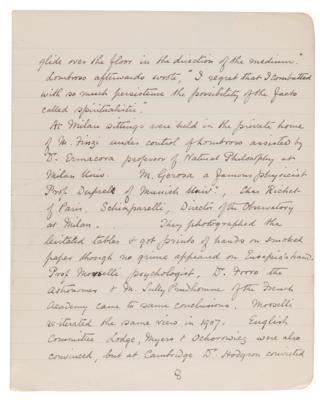 glide over the floor in the direction of the medium."
Lombroso afterwards wrote, "I regret that I combatted
with so much persistence the possibility of the facts
called spiritualistic".
At Milan sittings were held in the private home
of M. Finzi under control of Lombroso assisted by
D. Ermacora professor of Natural Philosophy at
Milan Univ. M. Gerosa a famous physicist
Prof. Duprel of Munich Univ., Chas Richet
of Paris, Schiaparelli, Director of the Observatory
at Milan. They photographed the
levitated tables & got prints of hands on smoked
paper though no grime appeared on Eusapia's hand.
Prof Morselli psychologist, D. Porro the
Astronomer & M. Sully Prudhomme of the French
Academy came to same conclusions. Morselli
re-iterated the same view in 1907. English
Committee Lodge, Myers & Ochorowicz were also
convinced, but at Cambridge D. Hodgson convicted
8